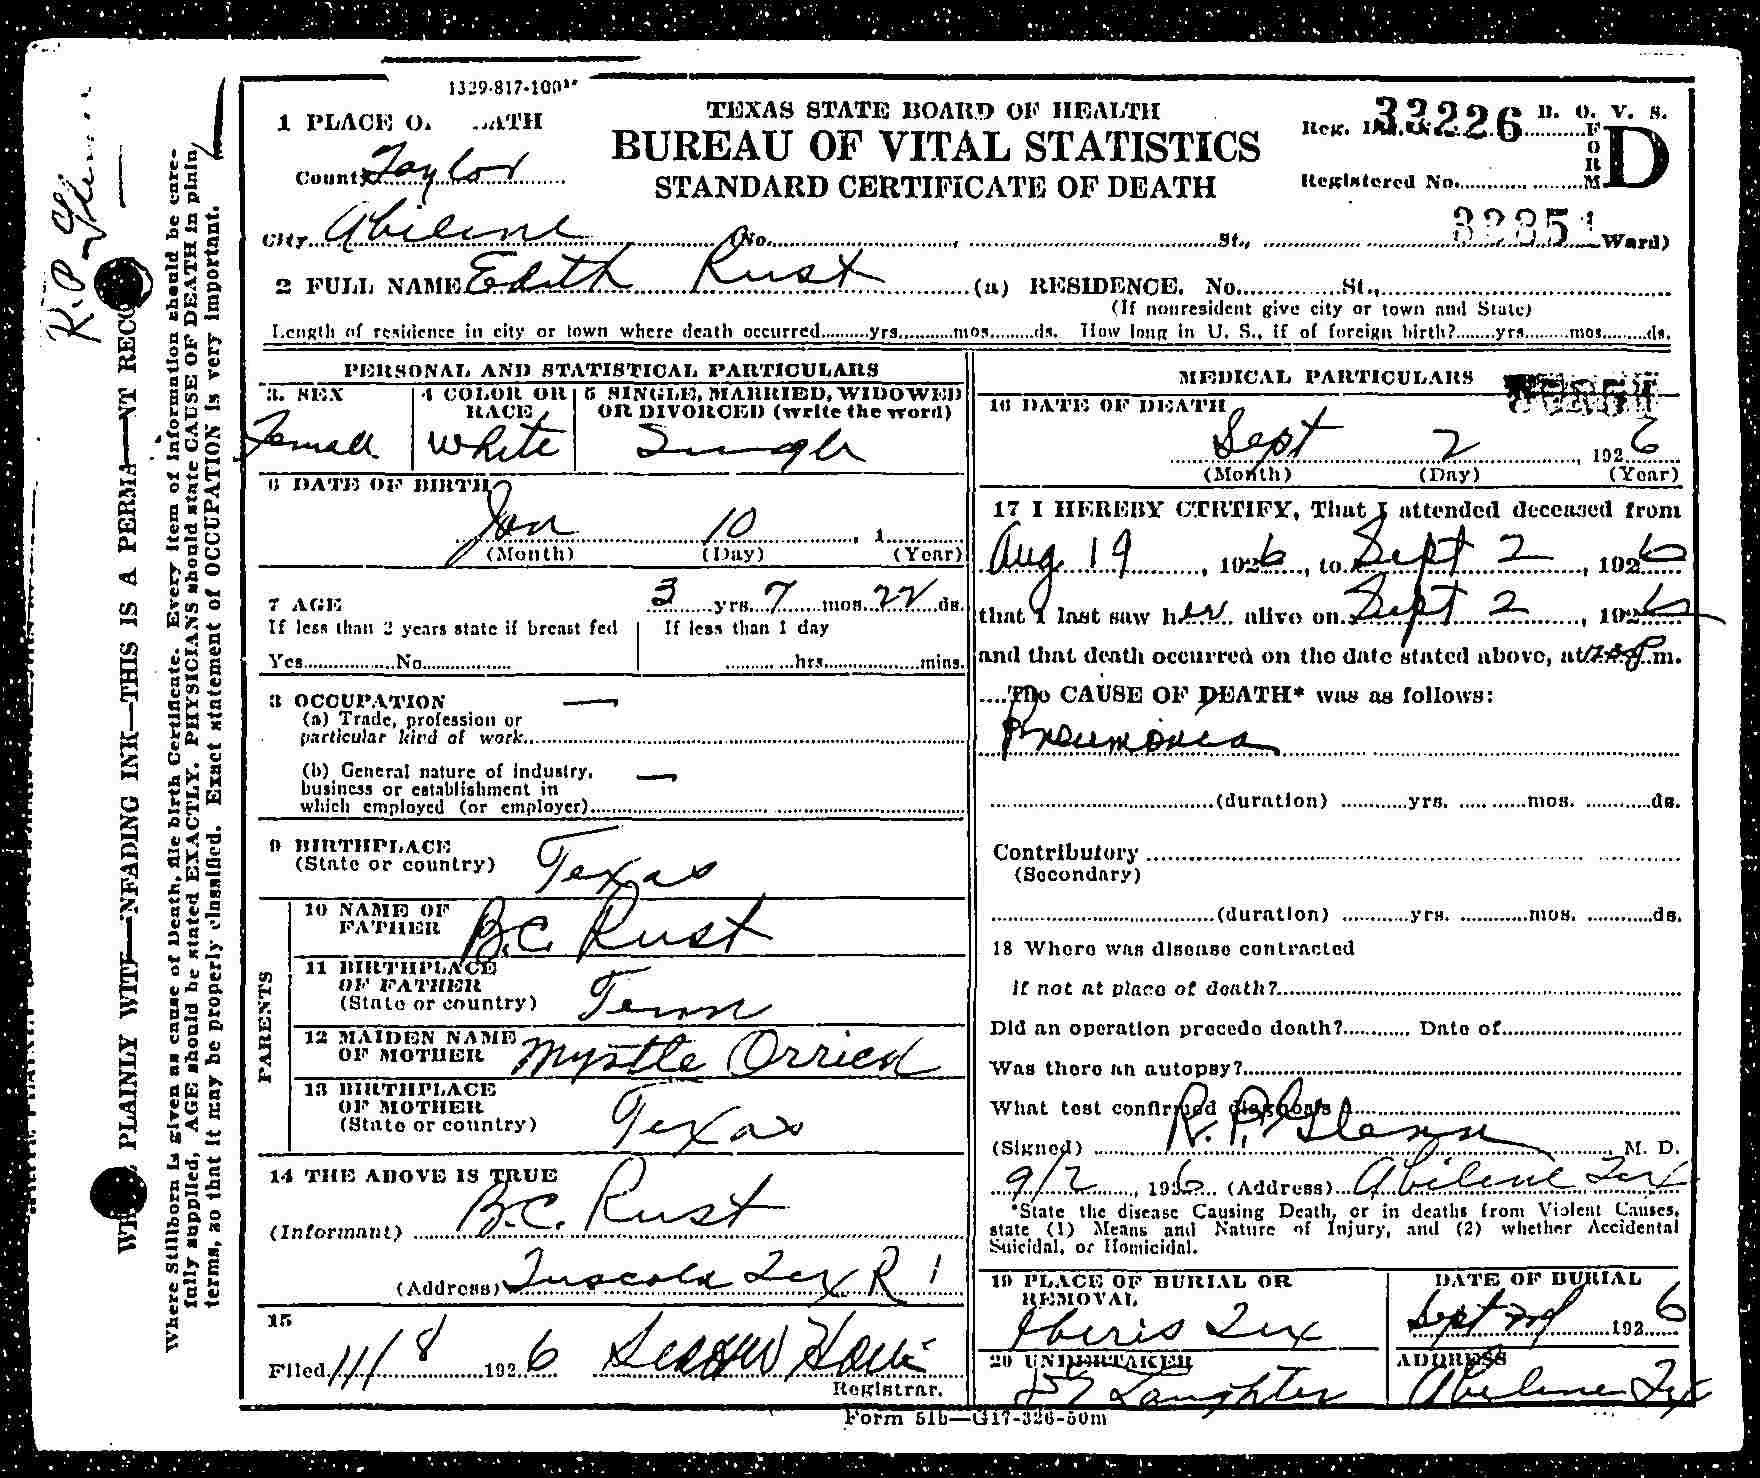 1329-817-100M
TEXAS STATE BOARD OF HEALTH
BUREAU OF VITAL STATISTICS
STANDARD CERTIFICATE OF DEATH
Reg. 33226 B. O. V. S.
FORM D
Registered No.
1 PLACE O. ATH
County Taylor
City Abilene (No. St., Ward)
2 FULL NAME Edith Rust (a) RESIDENCE. No. St.,
(If nonresident give city or town and State)
Length of residence in city or town where death occurred yrs. mos. ds. How long in U. S., if of foreign birth? yrs. mos. ds.
PERSONAL AND STATISTICAL PARTICULARS
3. SEX
Female
4 COLOR OR RACE
White
5 SINGLE, MARRIED, WIDOWED
OR DIVORCED (write the word)
Single
6 DATE OF BIRTH
Jan 10 , 1
(Month) (Day) (Year)
7 AGE 3 yrs. 7 mos. 22 ds.
If less than 2 years state if breast fed
Yes No
If less than 1 day
hrs. mins.
8 OCCUPATION —
(a) Trade, profession or
particular kind of work
(b) General nature of industry, —
business or establishment in
which employed (or employer)
9 BIRTHPLACE
(State or country) Texas
PARENTS
10 NAME OF
FATHER B.C. Rust
11 BIRTHPLACE
OF FATHER
(State or country) Tenn
12 MAIDEN NAME
OF MOTHER Myrtle Orrick
13 BIRTHPLACE
OF MOTHER
(State or country) Texas
14 THE ABOVE IS TRUE
(Informant) B.C. Rust
(Address) Tuscola Tex R 1
15
Filed 11/8 1926
Registrar.
MEDICAL PARTICULARS
16 DATE OF DEATH
Sept 2 , 1926
(Month) (Day) (Year)
17 I HEREBY CERTIFY, That I attended deceased from
Aug 19 , 1926, to Sept 2 , 1926
that I last saw her alive on Sept 2 , 1926
and that death occurred on the date stated above, at m.
The CAUSE OF DEATH* was as follows:
Pneumonia
(duration) yrs. mos. ds.
Contributory
(Secondary)
(duration) yrs. mos. ds.
18 Where was disease contracted
if not at place of death?
Did an operation precede death? Date of
Was there an autopsy?
What test confirmed diagnosis
(Signed) R. P. Glenn M. D.
9/2 , 1926 (Address) Abilene Tex
*State the disease Causing Death, or in deaths from Violent Causes,
state (1) Means and Nature of Injury, and (2) whether Accidental
Suicidal, or Homicidal.
19 PLACE OF BURIAL OR
REMOVAL
Iberis Tex
DATE OF BURIAL
Sept 2nd 1926
20 UNDERTAKER
Laughter
ADDRESS
Abilene Tex
Form 51b—G17-326-50m
R.P. Glenn
PLAINLY WITH NFADING INK—THIS IS A PERMA NT RECO
Where Stillborn is given as cause of Death, file birth Certificate. Every item of information should be care-
fully supplied, AGE should be stated EXACTLY. PHYSICIANS should state CAUSE OF DEATH in plain
terms, so that it may be properly classified. Exact statement of OCCUPATION is very important.